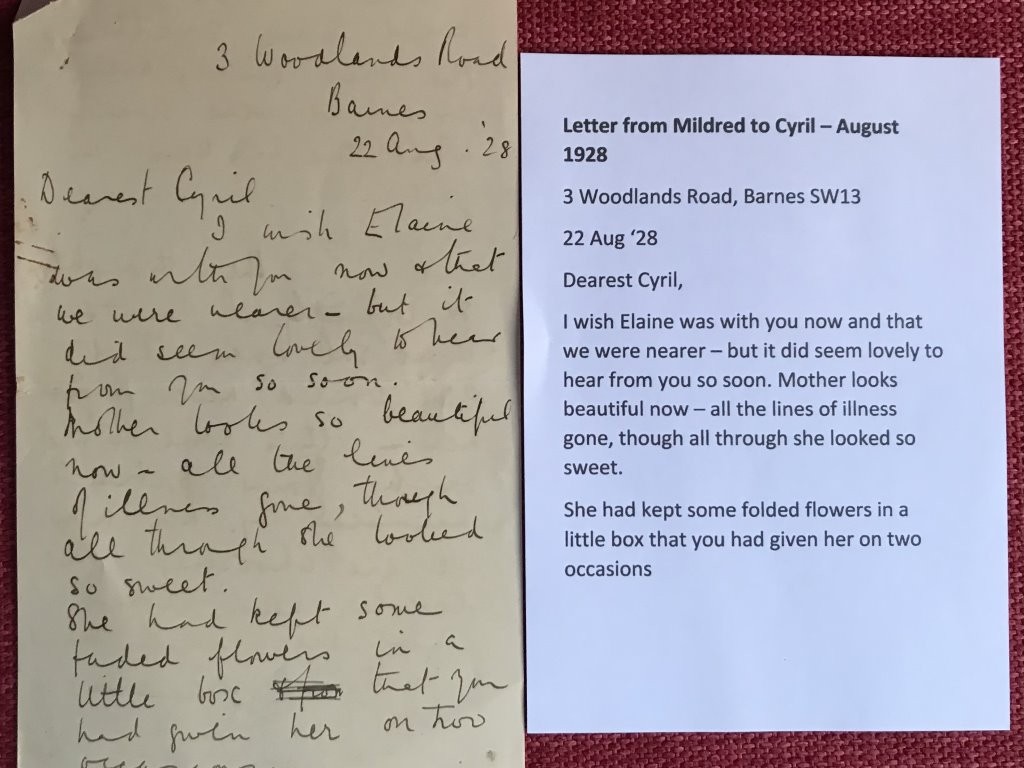 3 Woodlands Road
Barnes
22 Aug. '28
Dearest Cyril
I wish Elaine
was with you now & that
we were nearer – but it
did seem lovely to hear
from you so soon.
Mother looks so beautiful
now – all the lines
of illness gone, though
all through she looked
so sweet.
She had kept some
faded flowers in a
little box that you
had given her on two
Letter from Mildred to Cyril – August
1928
3 Woodlands Road, Barnes SW13
22 Aug ‘28
Dearest Cyril,
I wish Elaine was with you now and that
we were nearer – but it did seem lovely to
hear from you so soon. Mother looks
beautiful now – all the lines of illness
gone, though all through she looked so
sweet.
She had kept some folded flowers in a
little box that you had given her on two
occasions